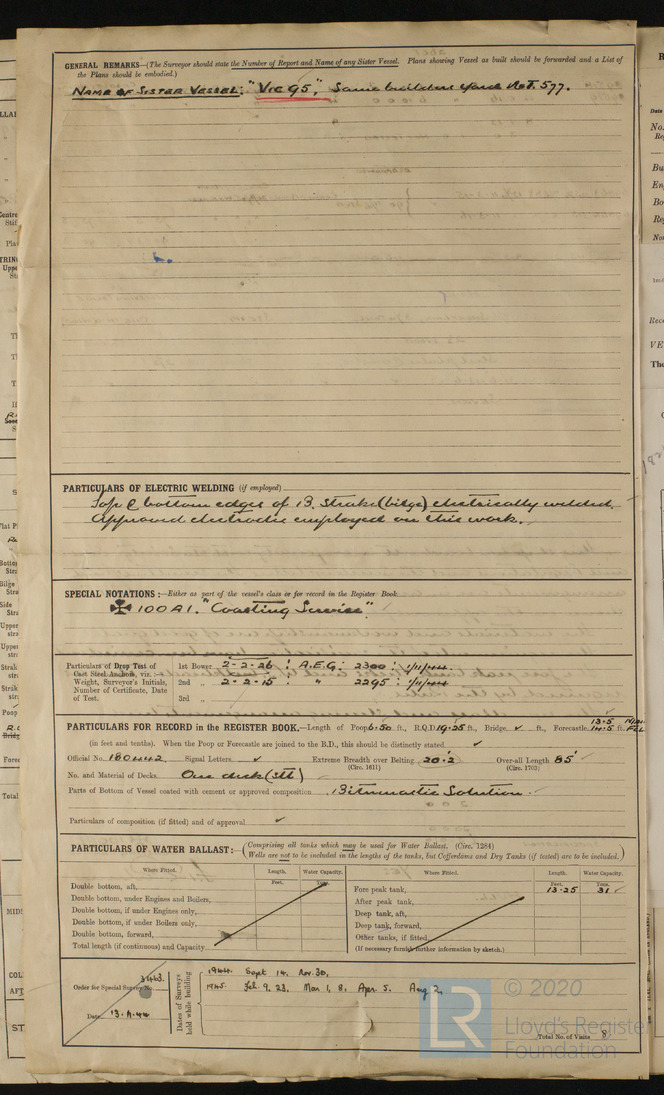 GENERAL REMARKS—(The Surveyor should state the Number of Report and Name of any Sister Vessel. Plans showing Vessel as built should be forwarded and a List of
the Plans should be embodied.)
NAME OF SISTER VESSEL: "VIC 95", Same builders Yard No. 577.
PARTICULARS OF ELECTRIC WELDING (if employed)
Top & bottom edges of B. Strake (bilge) electrically welded.
Approved electrodes employed on this work.
SPECIAL NOTATIONS:—Either as part of the vessel's class or for record in the Register Book.
✠ 100 A1. "Coasting Service"
Particulars of Drop Test of
Cast Steel Anchors, viz.:—
Weight, Surveyor's Initials,
Number of Certificate, Date
of Test.
1st Bower 2-2-26 : A.E.G: 2300 : 1/11/44.
2nd „ 2-2-15 : " 2295 : 1/11/44
3rd „
PARTICULARS FOR RECORD in the REGISTER BOOK.—Length of Poop 6.50 ft., R.Q.D 19.25 ft., Bridge ft., Forecastle 14.5 ft.
13.5
(in feet and tenths). When the Poop or Forecastle are joined to the B.D., this should be distinctly stated
Official No. 180442 Signal Letters Extreme Breadth over Belting 20.2 Over-all Length 85'
(Circ. 1611) (Circ. 1703)
No. and Material of Decks. One deck (stl)
Parts of Bottom of Vessel coated with cement or approved composition Bitumastic Solution.
Particulars of composition (if fitted) and of approval
PARTICULARS OF WATER BALLAST:— (Comprising all tanks which may be used for Water Ballast. (Circ. 1284)
Wells are not to be included in the lengths of the tanks, but Cofferdams and Dry Tanks (if tested) are to be included.)
Where Fitted. Length. Water Capacity. Where Fitted. Length. Water Capacity.
Feet. Tons. Feet. Tons.
Double bottom, aft,
Double bottom, under Engines and Boilers,
Double bottom, if under Engines only,
Double bottom, if under Boilers only,
Double bottom, forward,
Total length (if continuous) and Capacity
Fore peak tank, 13.25 31
After peak tank,
Deep tank, aft,
Deep tank, forward,
Other tanks, if fitted
(If necessary furnish further information by sketch.)
Order for Special Survey No. 3463.
Date 13.4.44
Dates of Surveys
held while building
1944. Sept 14. Nov. 30.
1945. Feb. 9. 23. Mar 1, 8, Apr. 5. Aug 2.
Total No. of Visits 8
LR © 2020
Lloyd's Register
Foundation